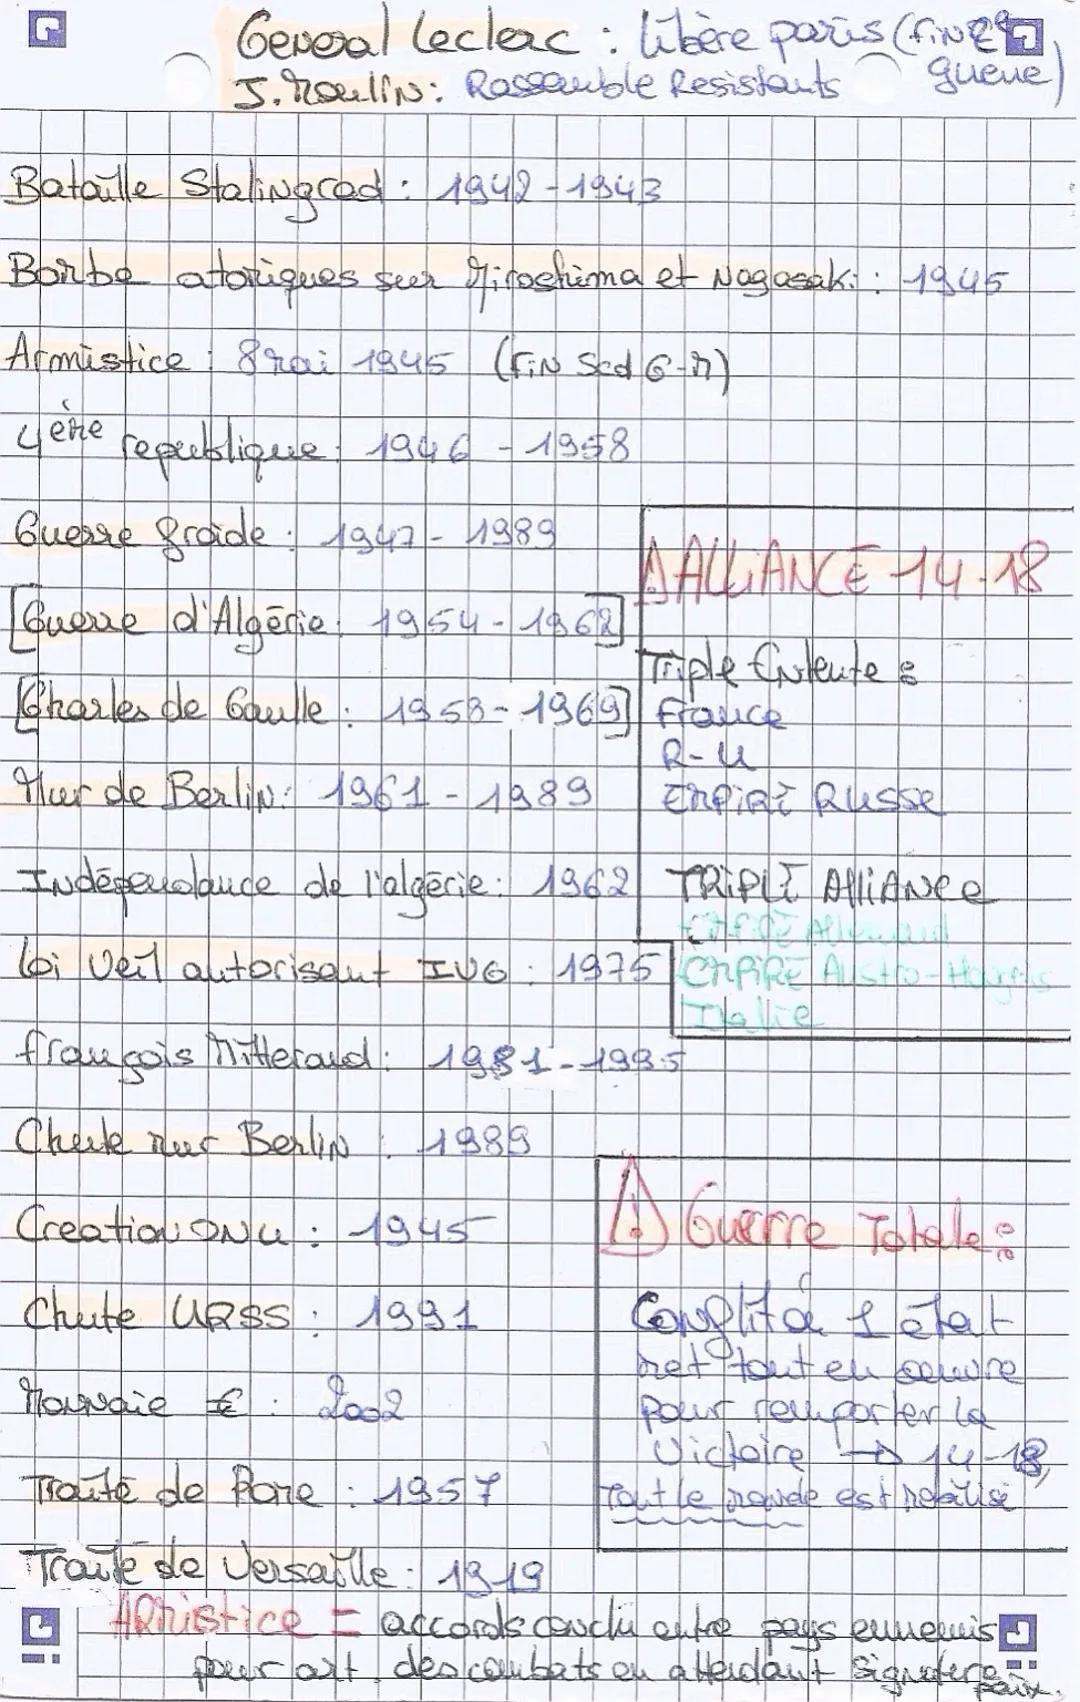 General Leclerc : libère paris (fin 2e guerre)
J. Moulin : Rassemble Resistants
Bataille Stalingrad : 1942-1943
Bombe atomiques sur Hiroshima et Nagasaki : 1945
Armistice : 8 mai 1945 (fin Scd G-M)
4ème republique : 1946 - 1958
Guerre froide : 1947 - 1989
[Guerre d'Algérie : 1954 - 1962]
[Charles de Gaulle : 1958 - 1969]
Mur de Berlin : 1961 - 1989
Indépendance de l'algérie : 1962
loi Veil autorisant IVG : 1975
françois Mitterand : 1981 - 1995
Chute mur Berlin : 1989
Creation ONU : 1945
Chute URSS : 1991
Monnaie € : 2002
Traité de Rome : 1957
Traité de Versaille : 1919
⚠ ALLIANCE 14-18
Triple Entente :
France
R-U
EMPIRE RUSSE
TRIPLE AlliANCE
EMPIRE Allemand
EMPIRE Austro-Hongrois
Italie
⚠ Guerre Totale :
Conflit où 1 état
met tout en oeuvre
pour remporter la
Victoire → 14-18,
Tout le monde est mobilisé
ARMistice = accords conclu entre pays ennemis
pour arrt. des combats en attendant signature paix.